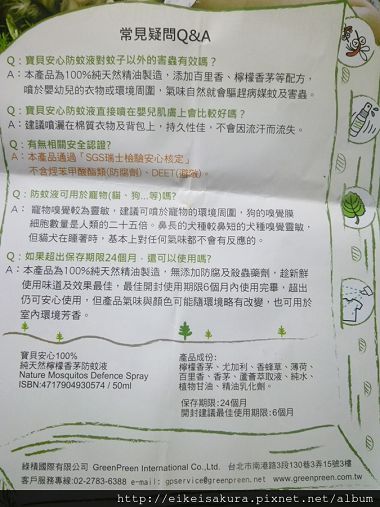 常見疑問Q&A
Q：寶貝安心防蚊液對蚊子以外的害蟲有效嗎？
A：本產品為100%純天然精油製造，添加百里香、檸檬香茅等配方，
噴於嬰幼兒的衣物或環境周圍，氣味自然就會驅趕病媒蚊及害蟲。
Q：寶貝安心防蚊液直接噴在嬰兒肌膚上會比較好嗎？
A：建議噴灑在棉質衣物及背包上，持久性佳，不會因流汗而流失。
Q：有無相關安全認證？
A：本產品通過「SGS瑞士檢驗安心核定」
不含羥苯甲酸酯類(防腐劑)、DEET(避蚊)。
Q：防蚊液可用於寵物(貓、狗...等)嗎?
A： 寵物嗅覺較為靈敏，建議可噴於寵物的環境周圍，狗的嗅覺膜
細胞數量是人類的二十五倍。鼻長的犬種較鼻短的犬種嗅覺靈敏，
但貓犬在睡著時，基本上對任何氣味都不會有反應的。
Q：如果超出保存期限24個月，還可以使用嗎?
A：本產品為100%純天然精油製造，無添加防腐及殺蟲藥劑，趁新鮮
使用味道及效果最佳，最佳開封使用期限6個月內使用完畢，超出
仍可安心使用，但產品氣味與顏色可能隨環境略有改變，也可用於
室內環境芳香。
寶貝安心100%
純天然檸檬香茅防蚊液
Nature Mosquitos Defence Spray
ISBN:4717904930574 / 50ml
產品成份:
檸檬香茅、尤加利、香蜂草、薄荷、
百里香、香茅、蘆薈萃取液、純水、
植物甘油、精油乳化劑。
保存期限:24個月
開封建議最佳使用期限:6個月
綠積國際有限公司 GreenPreen International Co.,Ltd. 台北市南港路3段130巷3弄15號3樓
客戶服務專線:02-2783-6388 e-mail: gpservice@greenpreen.net www.greenpreen.com.tw
http://eikeisakura.pixnet.net/album